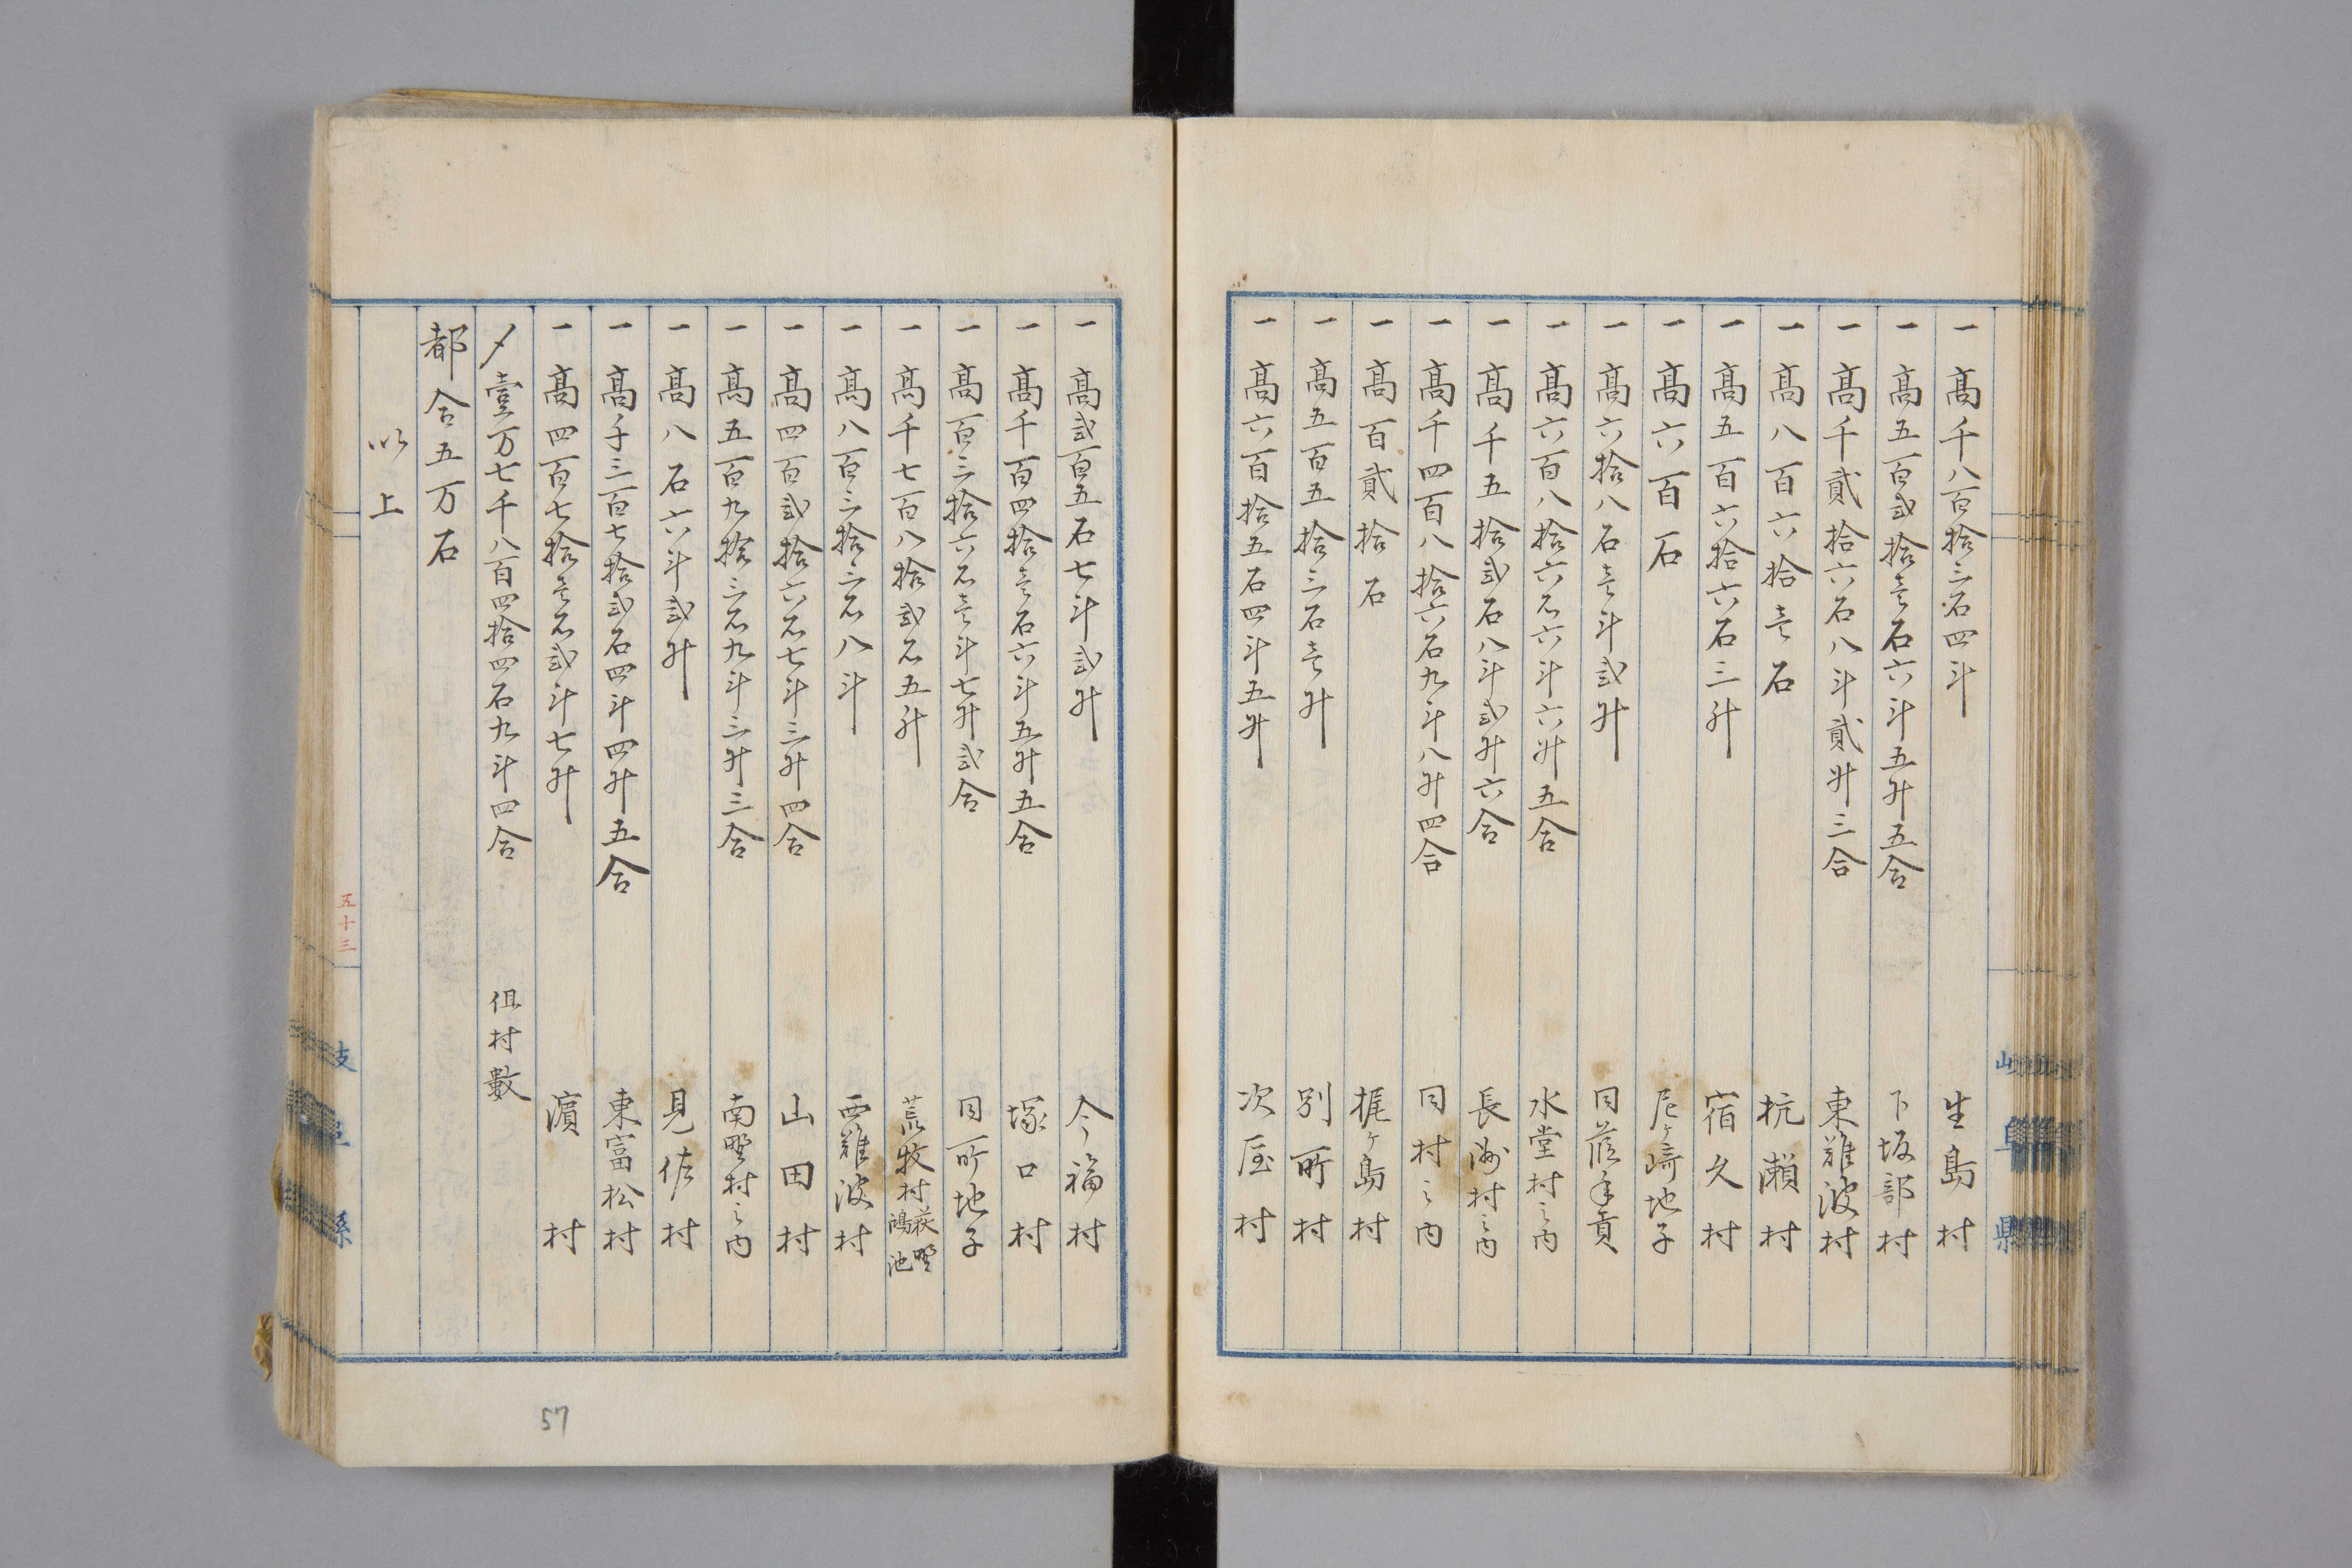 一 高千八百拾三石四斗 生島村
一 高五百弐拾壱石六斗五升五合 下坂部村
一 高千貳拾六石八斗貳升三合 東難波村
一 高八百六拾壱石 杭瀬村
一 高五百六拾六石三升 宿久村
一 高六百石 尼ヶ崎地子
一 高六拾八石壱斗弐升 同葭年貢
一 高六百八拾六石六斗六升五合 水堂村之内
一 高千五拾弐石八斗弐升六合 長洲村之内
一 高千四百八拾六石九斗八升四合 同村之内
一 高百貳拾石 梶ヶ島村
一 高五百五拾三石壱升 別所村
一 高六百拾五石四斗五升 次屋村
一 高弐百五石七斗弐升 今福村
一 高千百四拾壱石六斗五升五合 塚口村
一 高百三拾六石壱斗七升弐合 同所地子
一 高千七百八拾弐石五升 荒牧村荻野鴻池
一 高八百三拾三石八斗 西難波村
一 高四百弐拾六石七斗三升四合 山田村
一 高五百九拾三石九斗三升三合 南野村之内
一 高八石六斗弐升 見佐村
一 高千三百七拾弐石四斗四升五合 東富松村
一 高四百七拾壱石弐斗七升 濵村
〆壹万七千八百四拾四石九斗四合 但村數
都合五万石
以上
五十三
岐阜縣
57